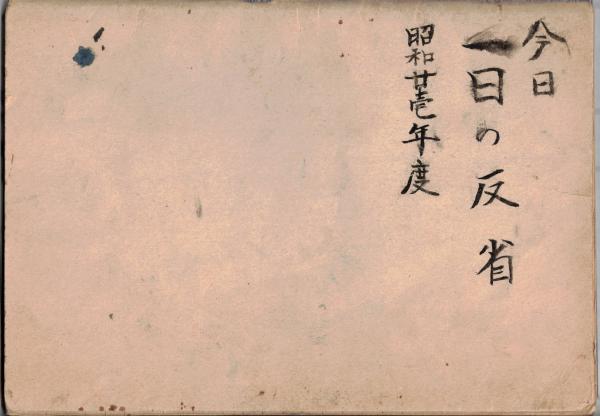 今日
一日の反省
昭和廿壱年度